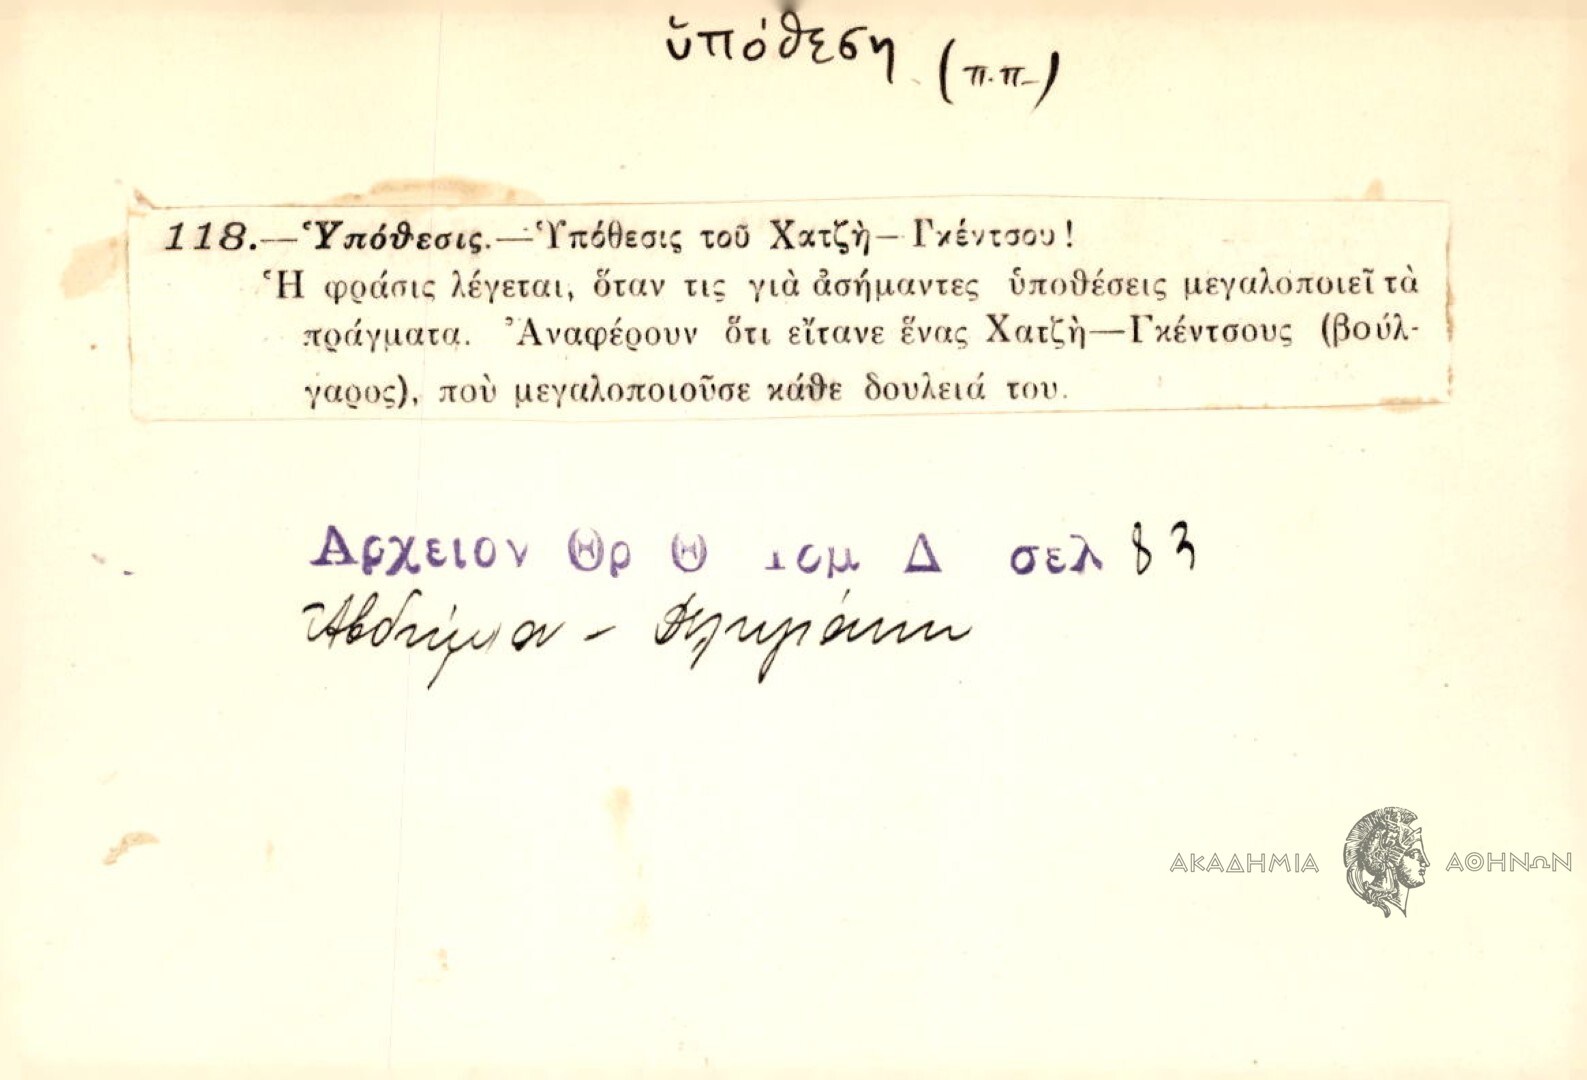 ὑπόθεση (π.π.)
118.—Ὑπόθεσις.—Ὑπόθεσις τοῦ Χατζὴ—Γκέντσου!
Ἡ φράσις λέγεται, ὅταν τις γιὰ ἀσήμαντες ὑποθέσεις μεγαλοποιεῖ τὰ
πράγματα. Ἀναφέρουν ὅτι εἴτανε ἕνας Χατζὴ—Γκέντσους (βούλ-
γαρος), ποὺ μεγαλοποιοῦσε κάθε δουλειά του.
Αρχειον Θρ Θ τομ Δ σελ 83
ΑΚΑΔΗΜΙΑ ΑΘΗΝΩΝ